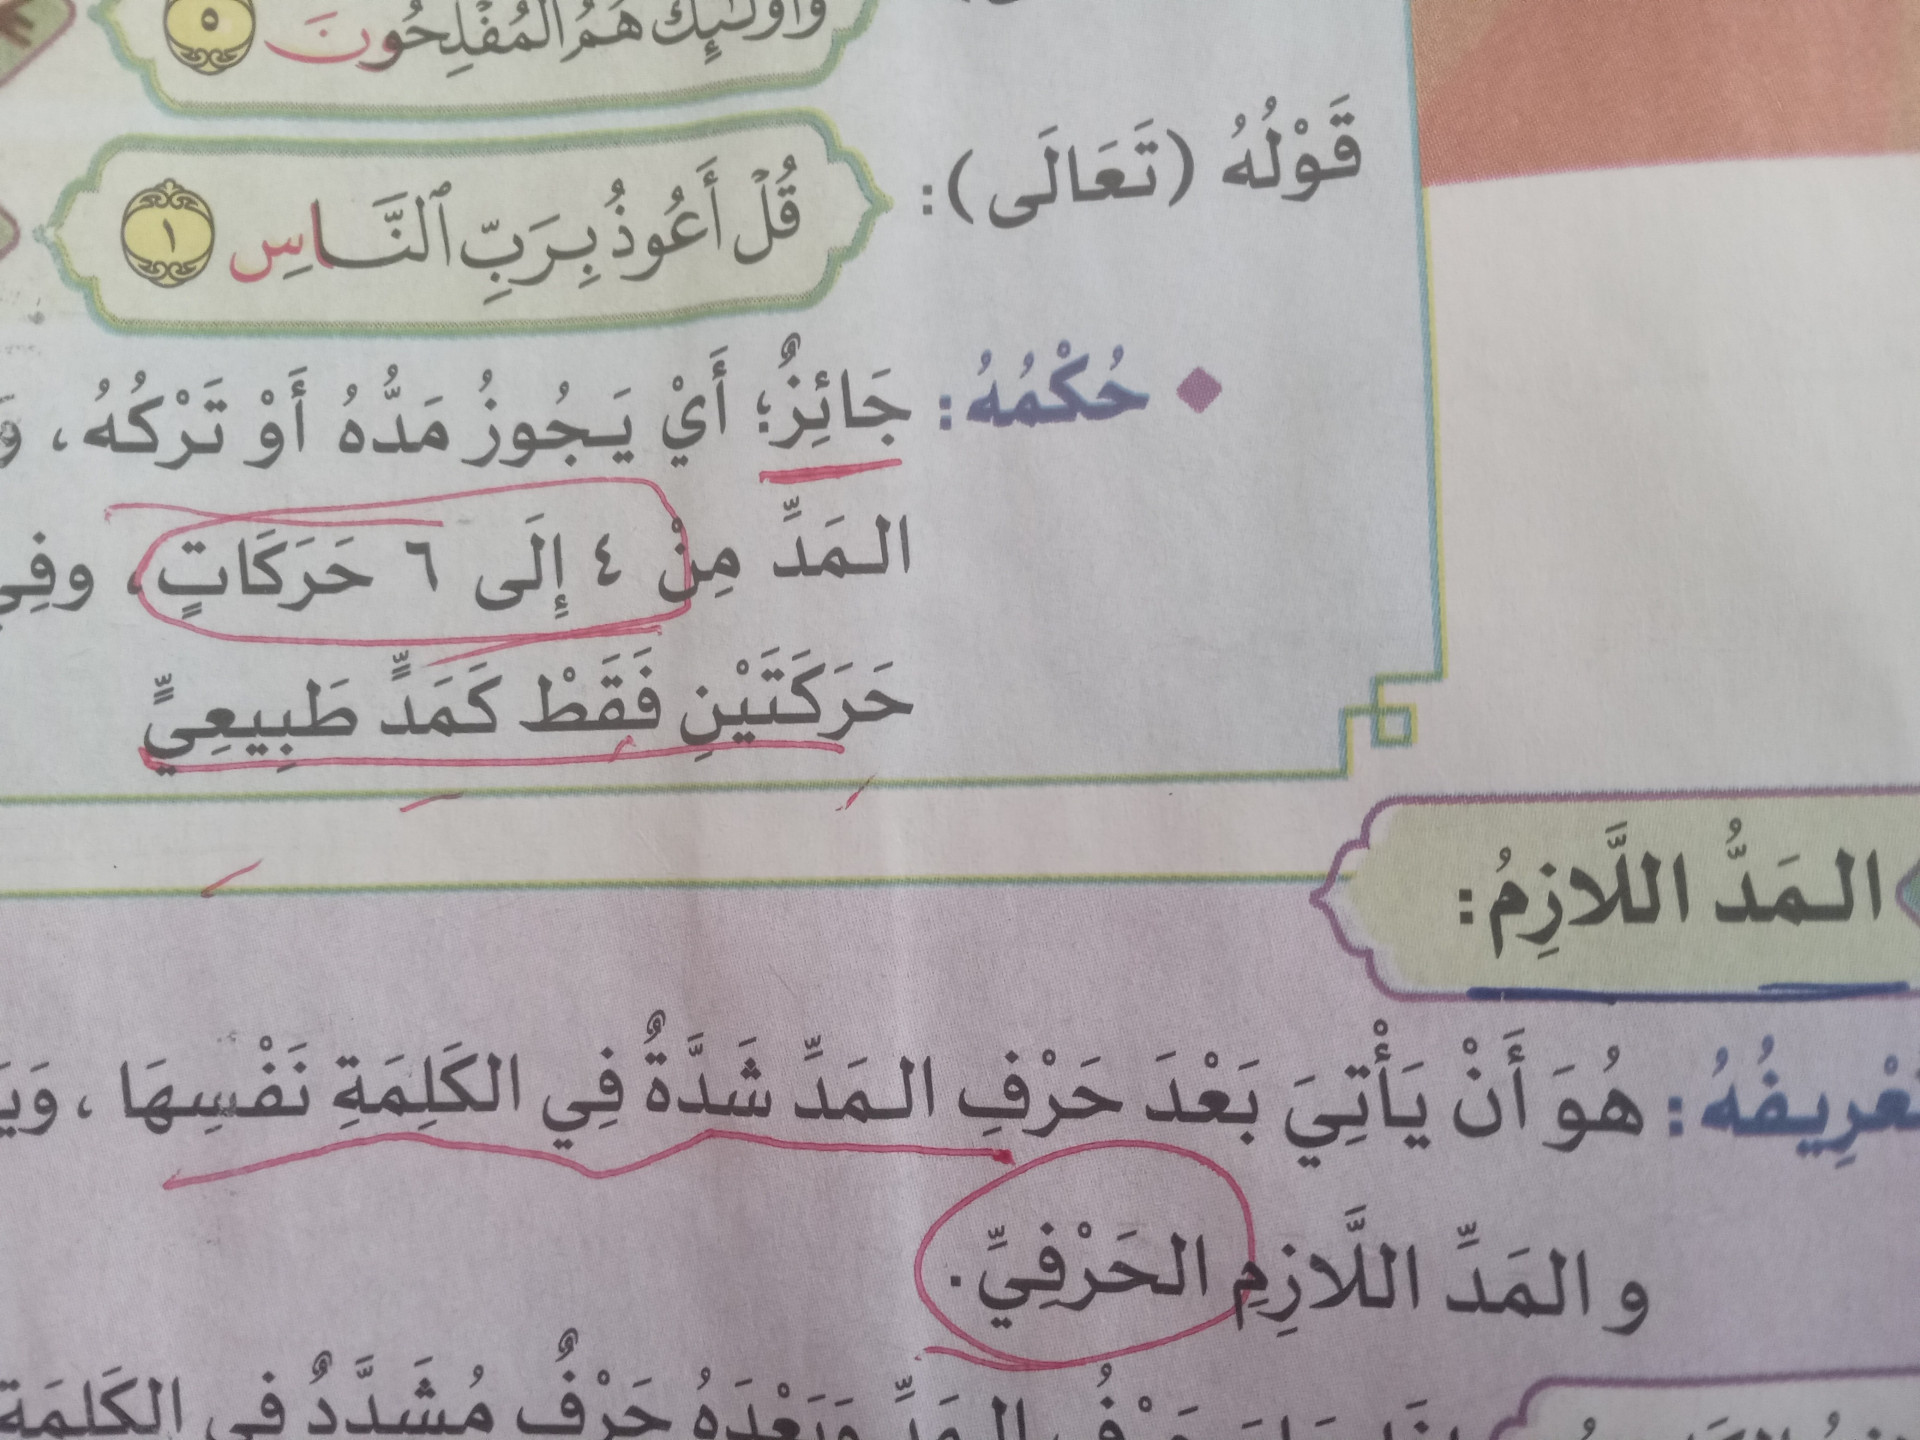 وَأُوْلَٰٓئِكَ هُمُ ٱلْمُفْلِحُونَ ٥
قَوْلُهُ (تَعَالَى): قُلْ أَعُوذُ بِرَبِّ ٱلنَّاسِ ١
حُكْمُهُ: جَائِزٌ؛ أَيْ يَجُوزُ مَدُّهُ أَوْ تَرْكُهُ،
المَدِّ مِنْ ٤ إِلَى ٦ حَرَكَاتٍ، وفِي
حَرَكَتَيْنِ فَقَطْ كَمَدٍّ طَبِيعِيٍّ
المَدُّ اللَّازِمُ:
تَعْرِيفُهُ: هُوَ أَنْ يَأْتِيَ بَعْدَ حَرْفِ المَدِّ شَدَّةٌ فِي الكَلِمَةِ نَفْسِهَا،
و المَدِّ اللَّازِمِ الحَرْفِيِّ.
المَدِّ وَبَعْدَهُ حَرْفٌ مُشَدَّدٌ فِي الكَلِمَةِ